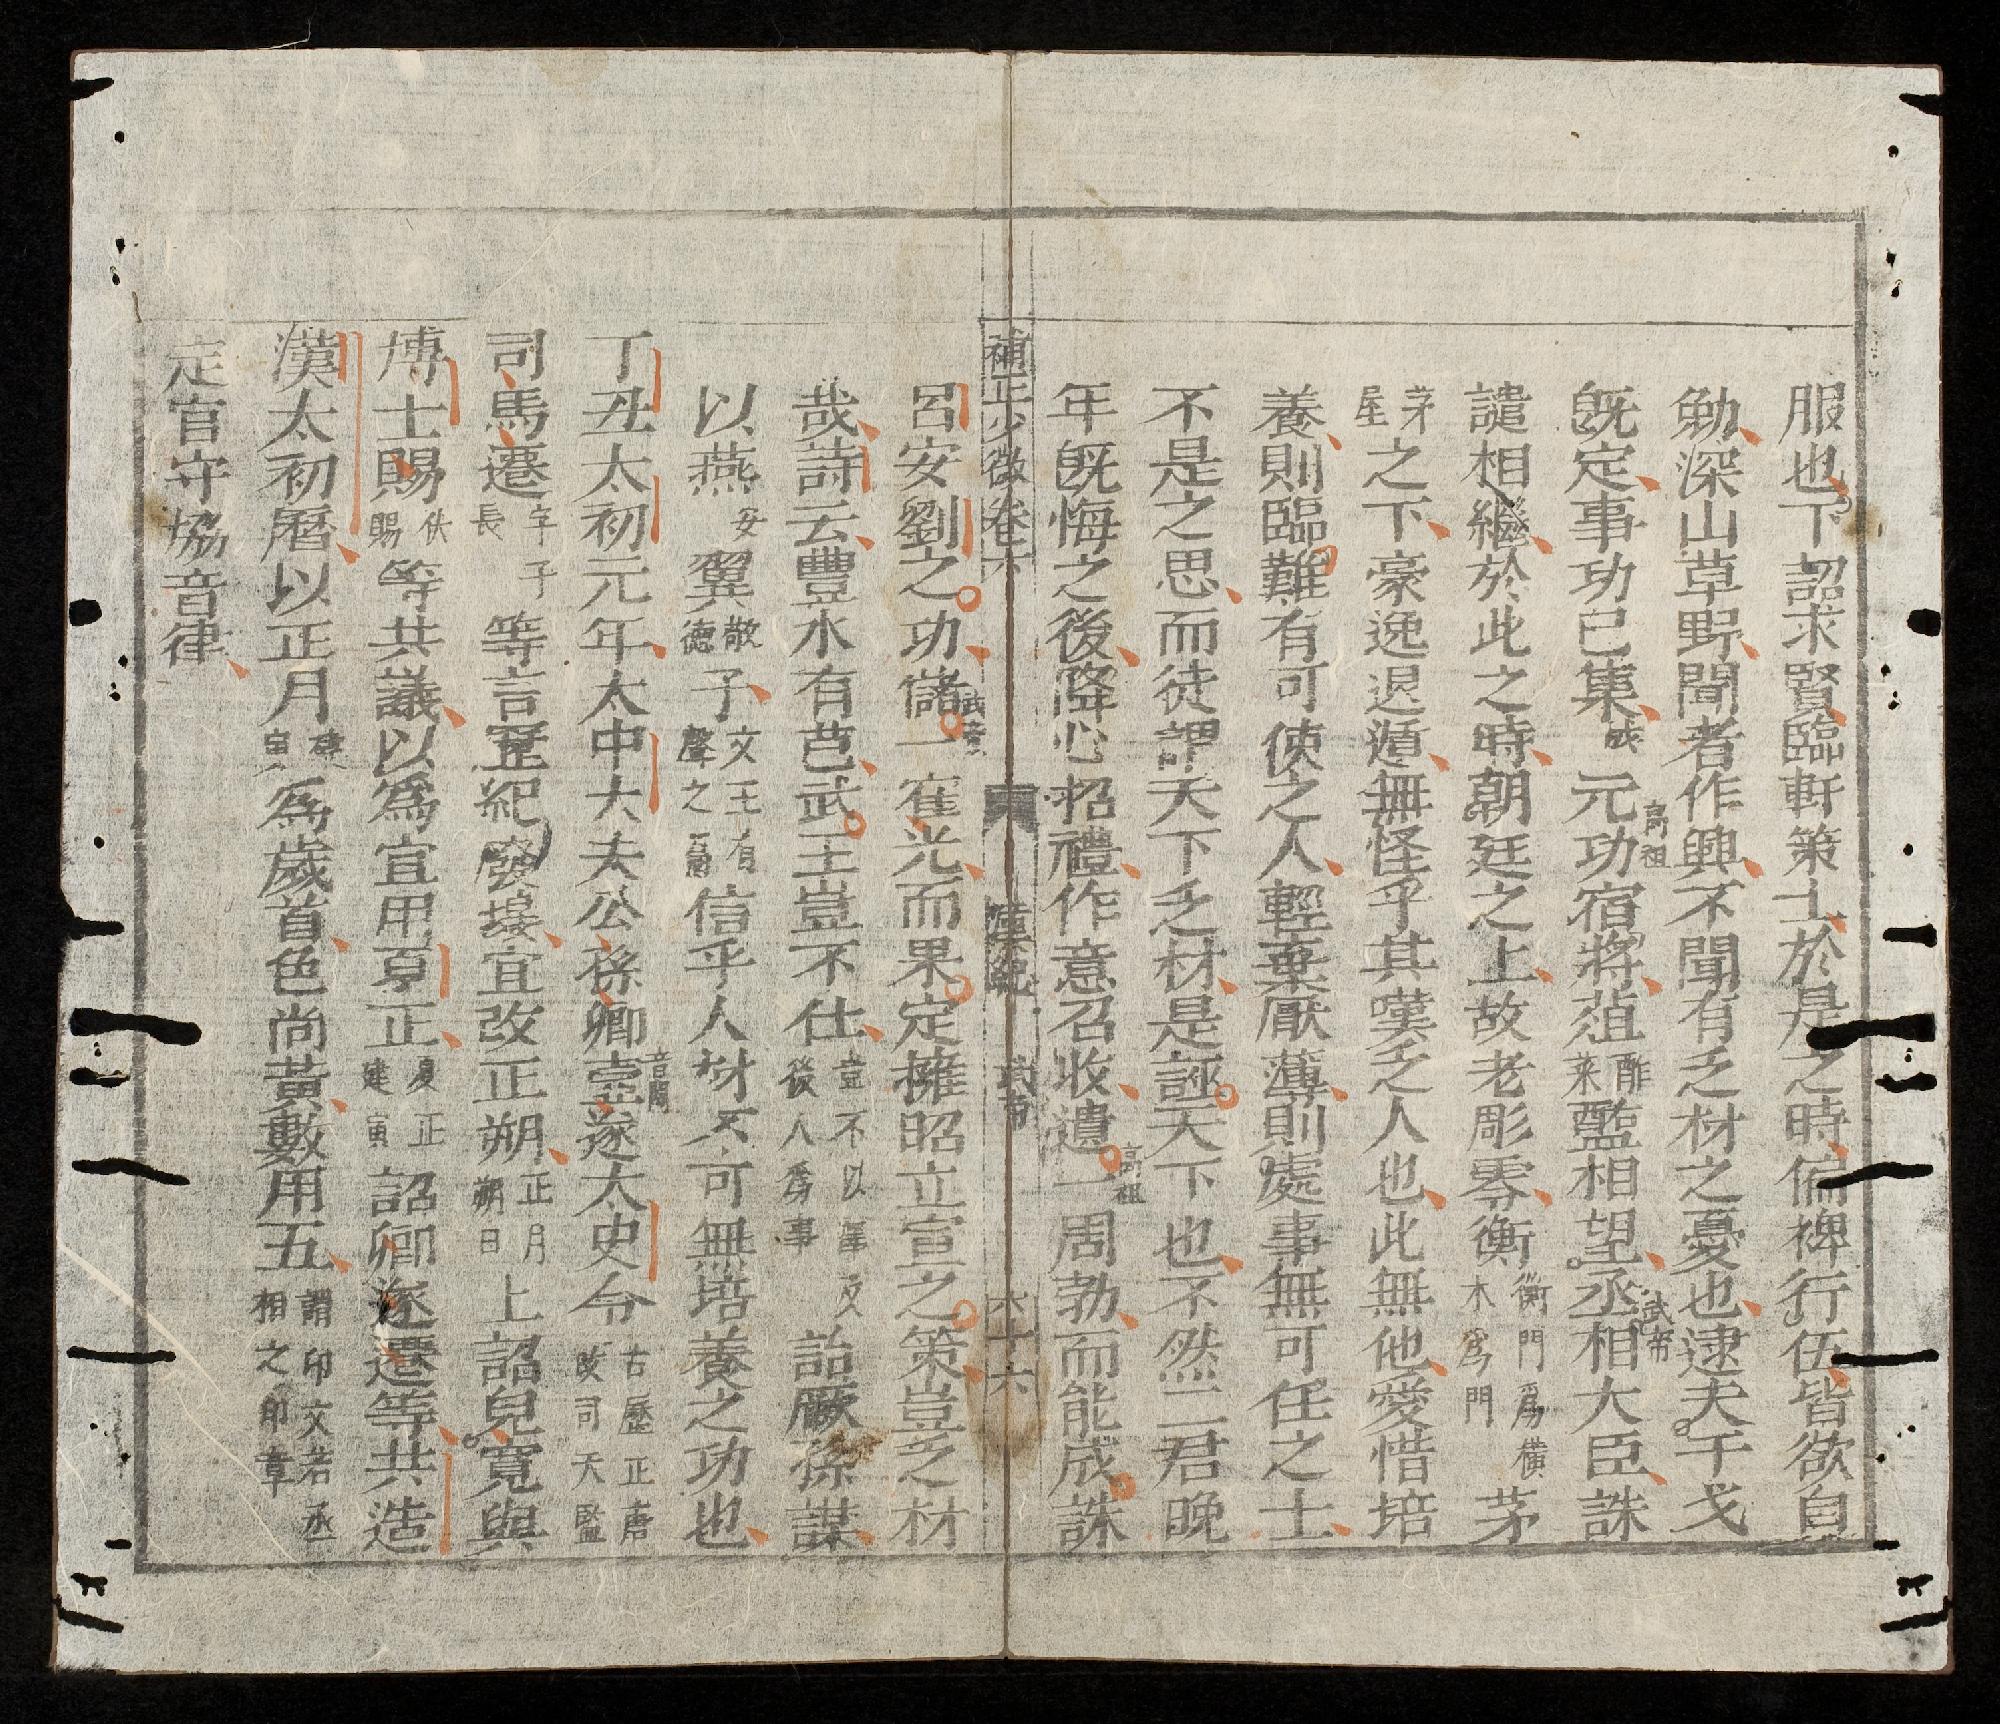 服也下詔求賢臨軒策士於是之時偏裨行伍皆欲自
勉深山草野聞者作興不聞有乏材之憂也逮夫干戈
旣定事功已集成元功宿高祖將葅酢菜醢相望丞相武帝大臣誅
譴相繼於此之時朝廷之上故老彫零衡衡門爲橫木爲門茅
茅屋之下豪逸退遁無怪乎其嘆乏人也此無他愛惜培
養則臨難有可使之人輕棄厭薄則處事無可任之士
不是之思而徒謂天下乏材是誣天下也不然二君晚
年旣悔之後降心招禮作意召收遺一高祖周勃而能成誅
補正少微卷六 漢紀 武帝 六十六
呂安劉之功儲一武帝霍光而果定擁昭立宣之策豈乏材
哉詩云豐水有芑武王豈不仕豈不以豐芑後人爲事詒厥孫謀
以燕安翼敬德子文王有聲之篇信乎人材不可無培養之功也
丁丑太初元年太中大夫公孫卿壺音閫遂太史令古歷正唐改司天監
司馬遷字子長等言歷紀廢壞宜改正朔正月朔日上詔兒寬與
博士賜佚賜等共議以爲宜用夏正夏正建寅詔卿遂遷等共造
漢太初曆以正月建寅爲歲首色尚黃數用五謂印文若丞相之印章
定官守協音律